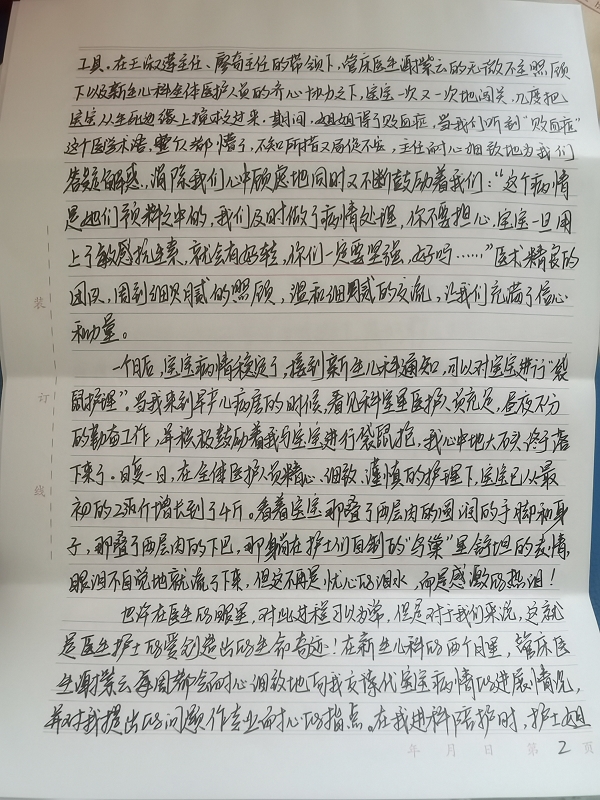 工具。在王淑莲主任、廖奇主任的带领下,管床医生谢紫云的无微不至照顾
下以及新生儿科全体医护人员的齐心协力之下,宝宝一次又一次地闯关,几度把
宝宝从生死边缘上拉过来。期间,姐姐得了败血症,当我们听到“败血症”
这个医学术语,整个人都懵了,不知所措又局促不安,主任耐心细致地为我们
答疑解惑,消除我们心中顾虑地同时又不断鼓励着我们:“这个病情
是她们预料之中的,我们及时做了病情处理,你不要担心,宝宝一旦用
上了敏感抗生素,就会有好转,你们一定要坚强,好吗……”医术精良的
团队,周到细腻的照顾,温和细腻的交流,让我们充满了信心
和力量。
一个月后,宝宝病情稳定了,接到新生儿科通知,可以对宝宝进行“袋
鼠护理”。当我来到早产儿病房的时候,看见科室里医护人员充足,昼夜不分
的勤奋工作,并积极鼓励着我与宝宝进行袋鼠抱,我心中地大石头终于落
下来了。日复一日,在全体医护人员精心、细致、谨慎的护理下,宝宝已从最
初的2斤增长到了4斤。看着宝宝那叠了两层肉的圆润的手脚和身
子,那叠了两层肉的下巴,那身躺在护士们自制的“鸟巢”里舒坦的表情,
眼泪不自觉地就流了下来,但这不再是忧心的泪水,而是感激的热泪!
也许在医生的眼里,对此过程习以为常,但是对于我们来说,这就
是医生护士的爱创造出的生命奇迹!在新生儿科的两个月里,管床医
生谢紫云每周都会耐心细致地向我交谈宝宝病情的进展情况,
并对我提出的问题作专业而耐心的指点。在我进科陪护时,护士姐
装
订
线
年 月 日 第 2 页